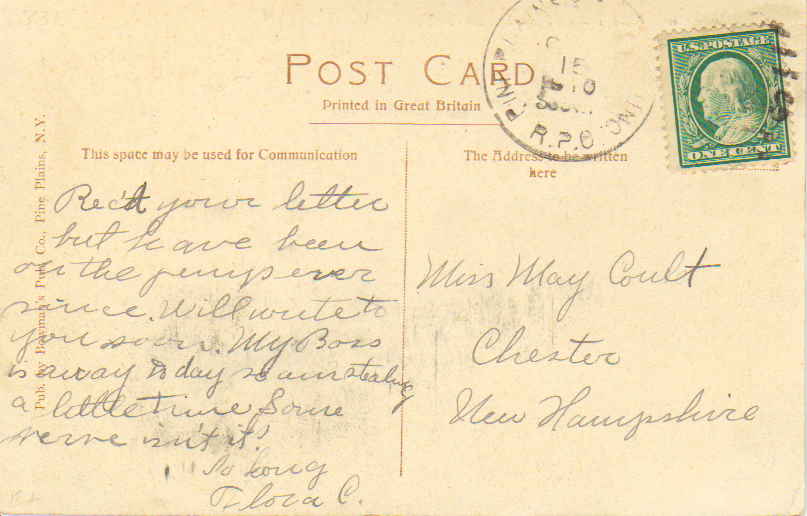 POST CARD
Printed in Great Britain
This space may be used for Communication
The Address to be written
here
Pub. by Bowman's Pub. Co., Pine Plains, N.Y.
U.S. POSTAGE
ONE CENT
R.P.O.
15
Rec'd your letter
but have been
on the jump ever
since. Will write to
you soon. My Boss
is away today so am stealing
a little time Some
nerve isn't it!
So long
Flora C.
Miss May Coult
Chester
New Hampshire